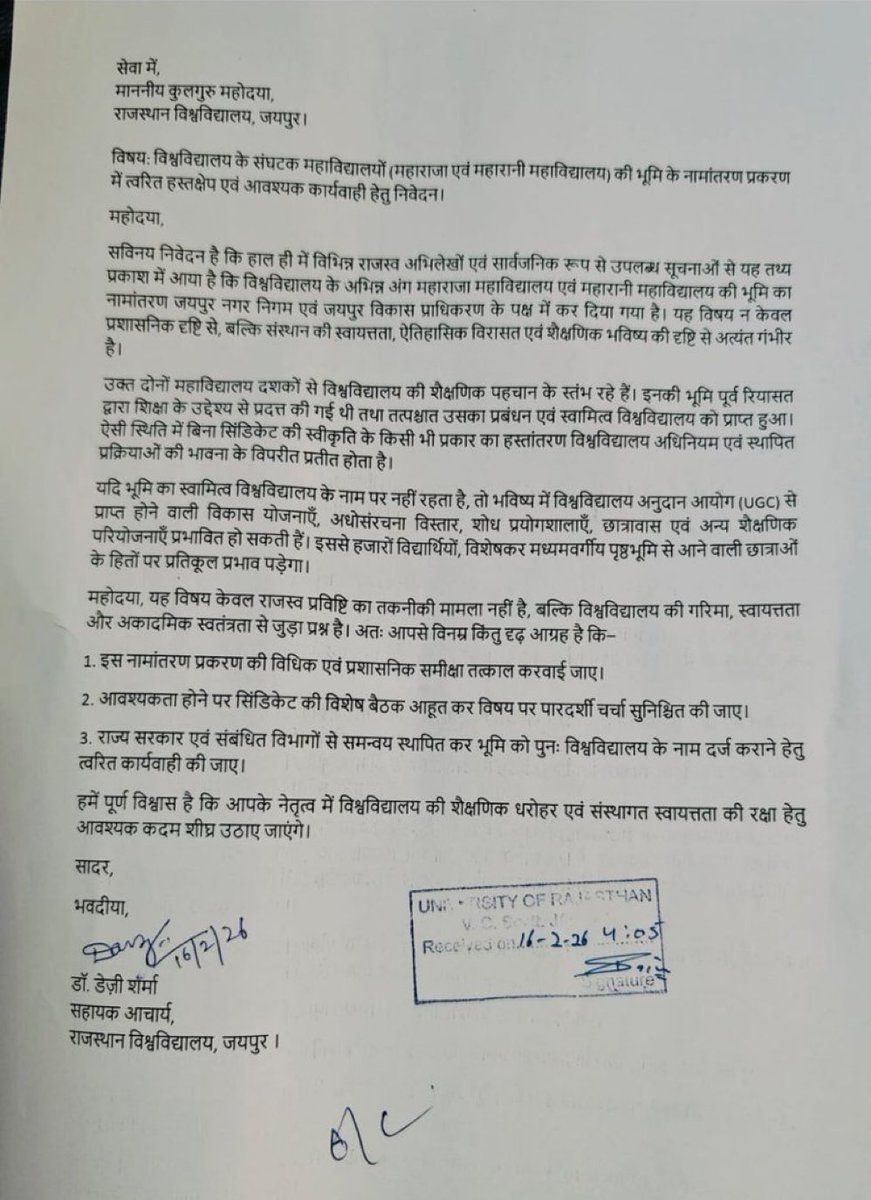 सेवा में,
माननीय कुलगुरु महोदया,
राजस्थान विश्वविद्यालय, जयपुर।
विषय: विश्वविद्यालय के संघटक महाविद्यालयों (महाराजा एवं महारानी महाविद्यालय) की भूमि के नामांतरण प्रकरण
में त्वरित हस्तक्षेप एवं आवश्यक कार्यवाही हेतु निवेदन।
महोदया,
सविनय निवेदन है कि हाल ही में विभिन्न राजस्व अभिलेखों एवं सार्वजनिक रूप से उपलब्ध सूचनाओं से यह तथ्य
प्रकाश में आया है कि विश्वविद्यालय के अभिन्न अंग महाराजा महाविद्यालय एवं महारानी महाविद्यालय की भूमि का
नामांतरण जयपुर नगर निगम एवं जयपुर विकास प्राधिकरण के पक्ष में कर दिया गया है। यह विषय न केवल
प्रशासनिक दृष्टि से, बल्कि संस्थान की स्वायत्तता, ऐतिहासिक विरासत एवं शैक्षणिक भविष्य की दृष्टि से अत्यंत गंभीर
है।
उक्त दोनों महाविद्यालय दशकों से विश्वविद्यालय की शैक्षणिक पहचान के स्तंभ रहे हैं। इनकी भूमि पूर्व रियासत
द्वारा शिक्षा के उद्देश्य से प्रदत्त की गई थी तथा तत्पश्चात उसका प्रबंधन एवं स्वामित्व विश्वविद्यालय को प्राप्त हुआ।
ऐसी स्थिति में बिना सिंडिकेट की स्वीकृति के किसी भी प्रकार का हस्तांतरण विश्वविद्यालय अधिनियम एवं स्थापित
प्रक्रियाओं की भावना के विपरीत प्रतीत होता है।
यदि भूमि का स्वामित्व विश्वविद्यालय के नाम पर नहीं रहता है, तो भविष्य में विश्वविद्यालय अनुदान आयोग (UGC) से
प्राप्त होने वाली विकास योजनाएँ, अधोसंरचना विस्तार, शोध प्रयोगशालाएँ, छात्रावास एवं अन्य शैक्षणिक
परियोजनाएँ प्रभावित हो सकती हैं। इससे हजारों विद्यार्थियों, विशेषकर मध्यमवर्गीय पृष्ठभूमि से आने वाली छात्राओं
के हितों पर प्रतिकूल प्रभाव पड़ेगा।
महोदया, यह विषय केवल राजस्व प्रविष्टि का तकनीकी मामला नहीं है, बल्कि विश्वविद्यालय की गरिमा, स्वायत्तता
और अकादमिक स्वतंत्रता से जुड़ा प्रश्न है। अतः आपसे विनम्र किंतु दृढ़ आग्रह है कि–
1. इस नामांतरण प्रकरण की विधिक एवं प्रशासनिक समीक्षा तत्काल करवाई जाए।
2. आवश्यकता होने पर सिंडिकेट की विशेष बैठक आहूत कर विषय पर पारदर्शी चर्चा सुनिश्चित की जाए।
3. राज्य सरकार एवं संबंधित विभागों से समन्वय स्थापित कर भूमि को पुनः विश्वविद्यालय के नाम दर्ज कराने हेतु
त्वरित कार्यवाही की जाए।
हमें पूर्ण विश्वास है कि आपके नेतृत्व में विश्वविद्यालय की शैक्षणिक धरोहर एवं संस्थागत स्वायत्तता की रक्षा हेतु
आवश्यक कदम शीघ्र उठाए जाएंगे।
सादर,
भवदीया,
16/2/26
डॉ. डेज़ी शर्मा
सहायक आचार्य,
राजस्थान विश्वविद्यालय, जयपुर ।
UNIVERSITY OF RAJASTHAN
V. C.
Received on 16-2-26 4:05
Signature